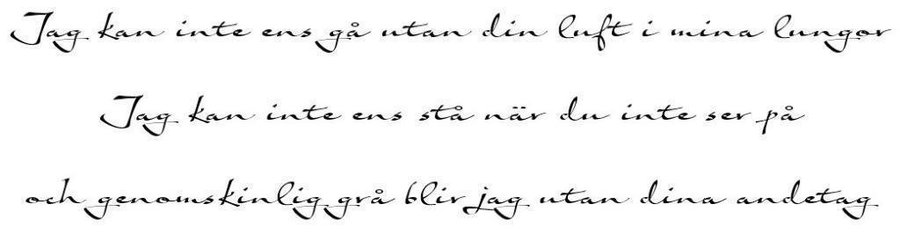 Jag kan inte ens gå utan din luft i mina lungor
Jag kan inte ens stå när du inte ser på
och genomskinlig grå blir jag utan dina andetag